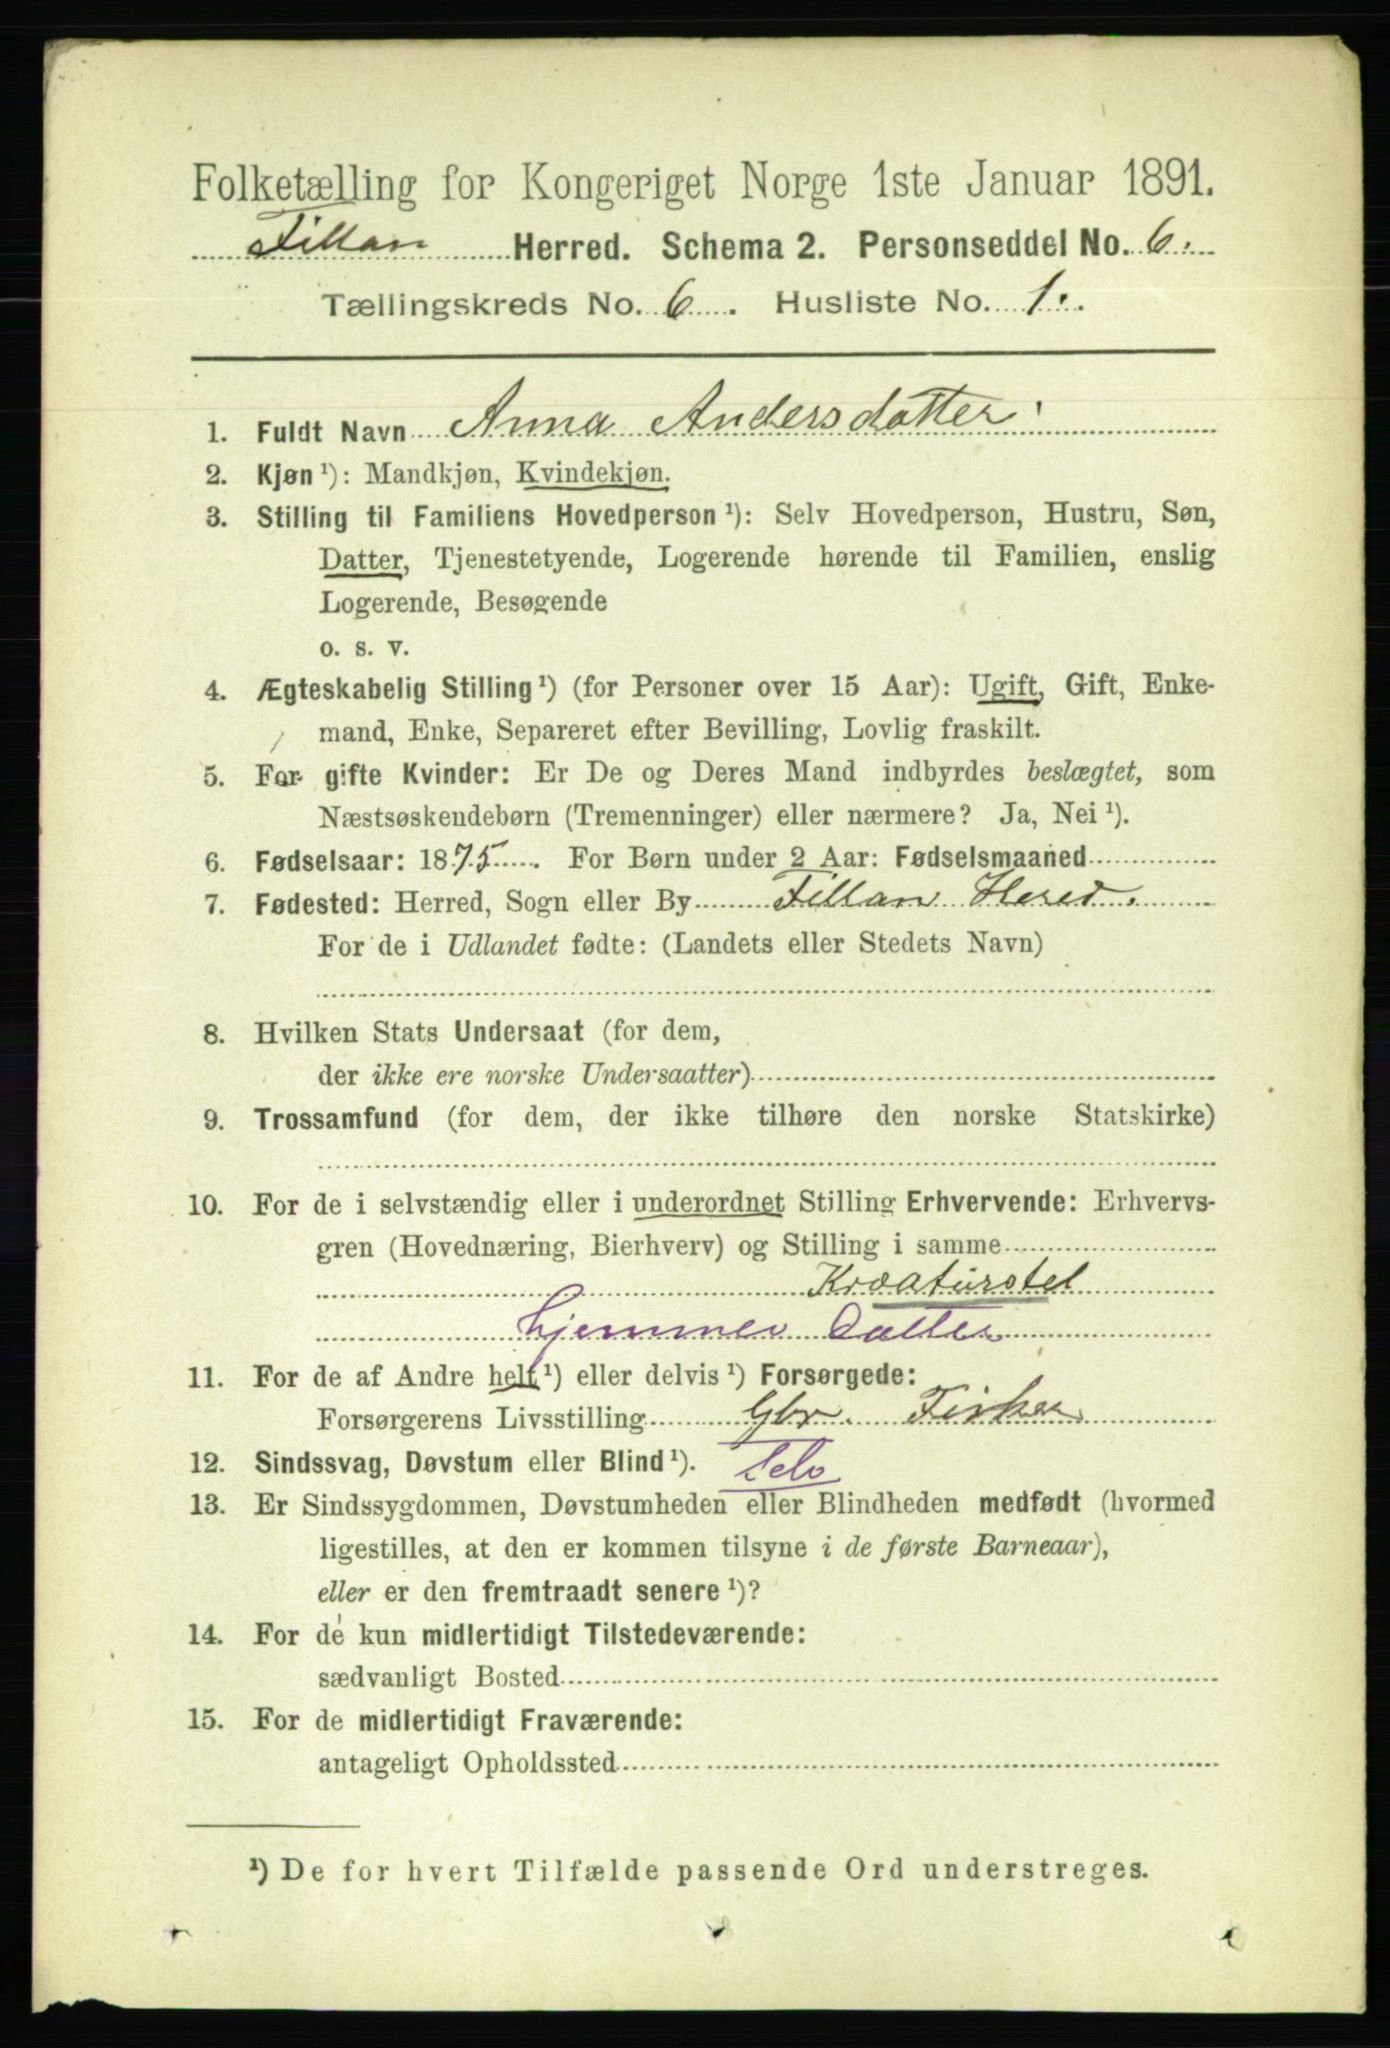 Folketælling for Kongeriget Norge 1ste Januar 1891.
Fillan Herred. Schema 2. Personseddel No. 6.
Tællingskreds No. 6. Husliste No. 1.
1. Fuldt Navn Anna Andersdatter
2. Kjøn ¹): Mandkjøn, Kvindekjøn.
3. Stilling til Familiens Hovedperson ¹): Selv Hovedperson, Hustru, Søn,
Datter, Tjenestetyende, Logerende hørende til Familien, enslig
Logerende, Besøgende
o. s. v.
4. Ægteskabelig Stilling ¹) (for Personer over 15 Aar): Ugift, Gift, Enke-
mand, Enke, Separeret efter Bevilling, Lovlig fraskilt.
5. For gifte Kvinder: Er De og Deres Mand indbyrdes beslægtet, som
Næstsøskendebørn (Tremenninger) eller nærmere? Ja, Nei ¹).
6. Fødselsaar: 1875. For Børn under 2 Aar: Fødselsmaaned
7. Fødested: Herred, Sogn eller By Fillan Hered.
For de i Udlandet fødte: (Landets eller Stedets Navn)
8. Hvilken Stats Undersaat (for dem,
der ikke ere norske Undersaatter)
9. Trossamfund (for dem, der ikke tilhøre den norske Statskirke)
10. For de i selvstændig eller i underordnet Stilling Erhvervende: Erhvervs-
gren (Hovednæring, Bierhverv) og Stilling i samme
Kreaturstel
hjemmev Datter
11. For de af Andre helt ¹) eller delvis ¹) Forsørgede:
Forsørgerens Livsstilling Gbr. Fisker
12. Sindssvag, Døvstum eller Blind ¹). Selv
13. Er Sindssygdommen, Døvstumheden eller Blindheden medfødt (hvormed
ligestilles, at den er kommen tilsyne i de første Barneaar),
eller er den fremtraadt senere ¹)?
14. For de kun midlertidigt Tilstedeværende:
sædvanligt Bosted
15. For de midlertidigt Fraværende:
antageligt Opholdssted
¹) De for hvert Tilfælde passende Ord understreges.